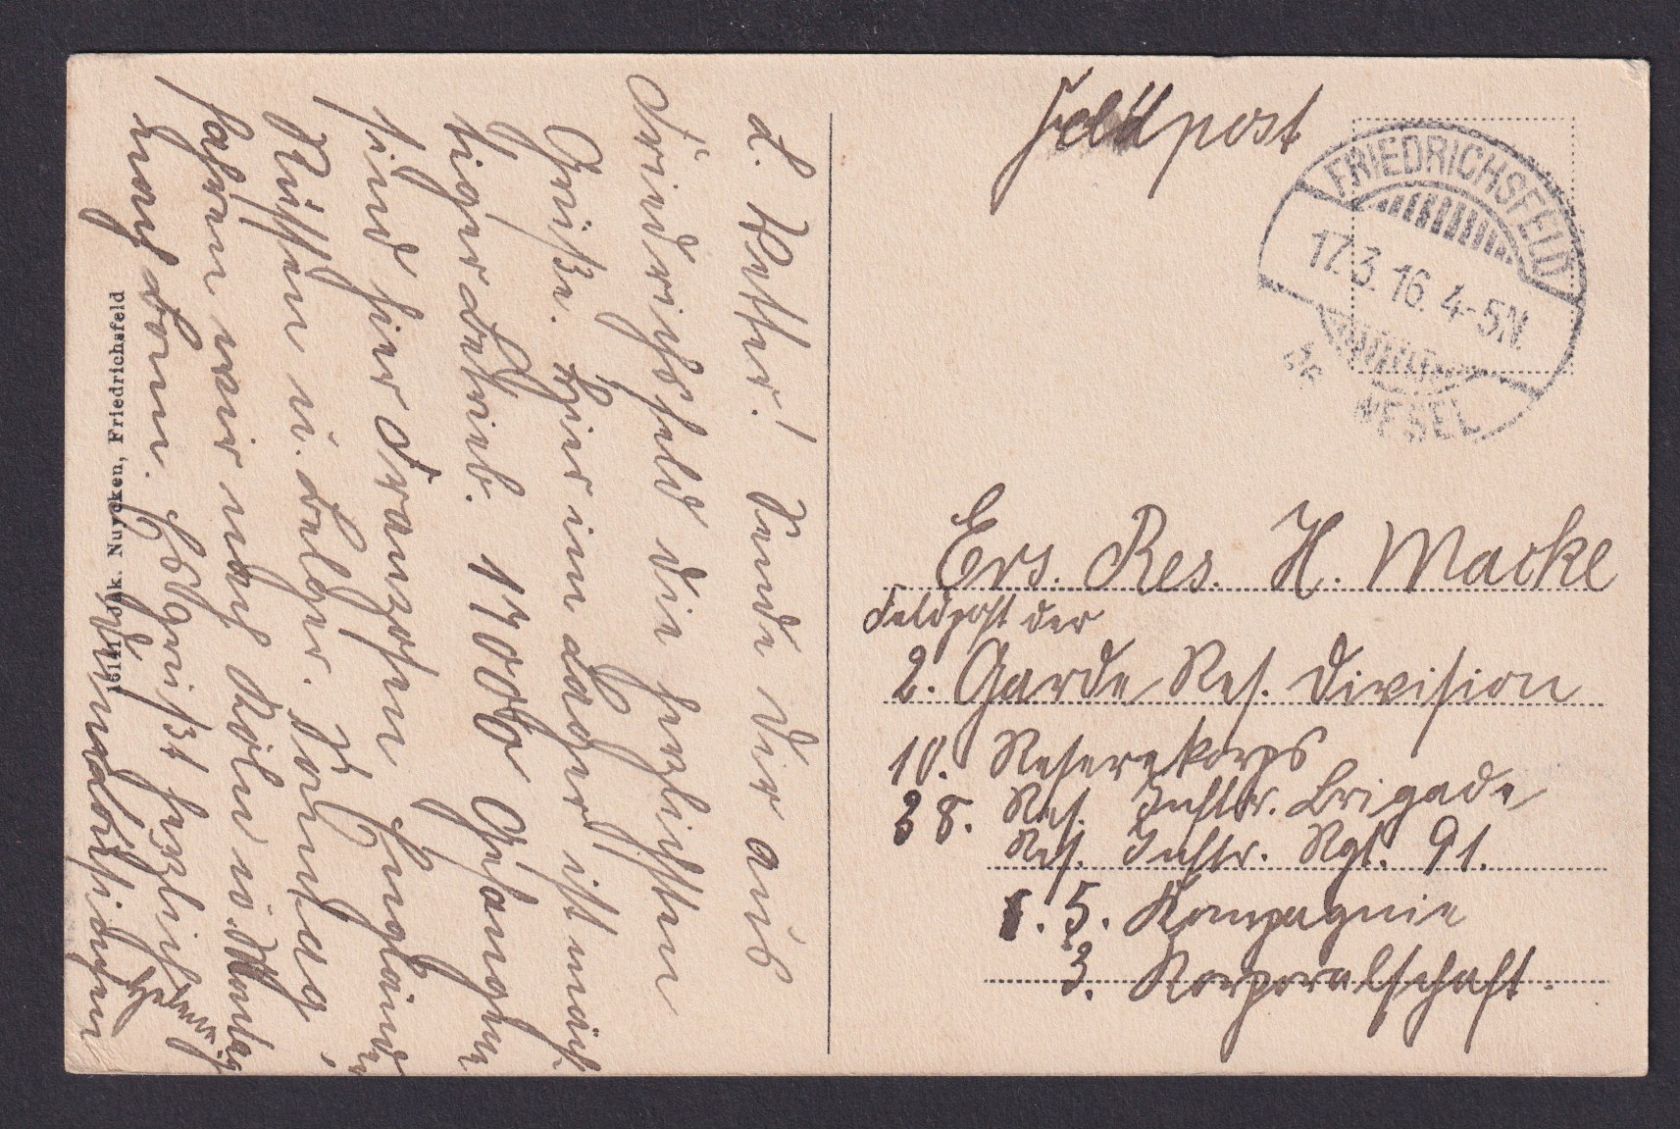 Feldpost
FRIEDRICHSFELD
17.3.16. 4-5N.
WESEL
Ers. Res. H. Macke
Feldpost der
2. Garde Res. Division
10. Reservekorps
38. Res. Inftr. Brigade
Res. Inftr. Rgt. 91.
5. Kompagnie
3. Korporalschaft.
L. Vetter! Sende dir aus
Friedrichsfeld die herzlichsten
Grüße. Hier im Lager ist mäch-
tiger Betrieb. 17000 Gefangene
sind hier Franzosen Engländer
Russen u. Belger. Sonntag
fahren wir nach Köln u. Montag
nach Bonn. Es grüßt herzlich
16141 Jak. Nuyeken, Friedrichsfeld